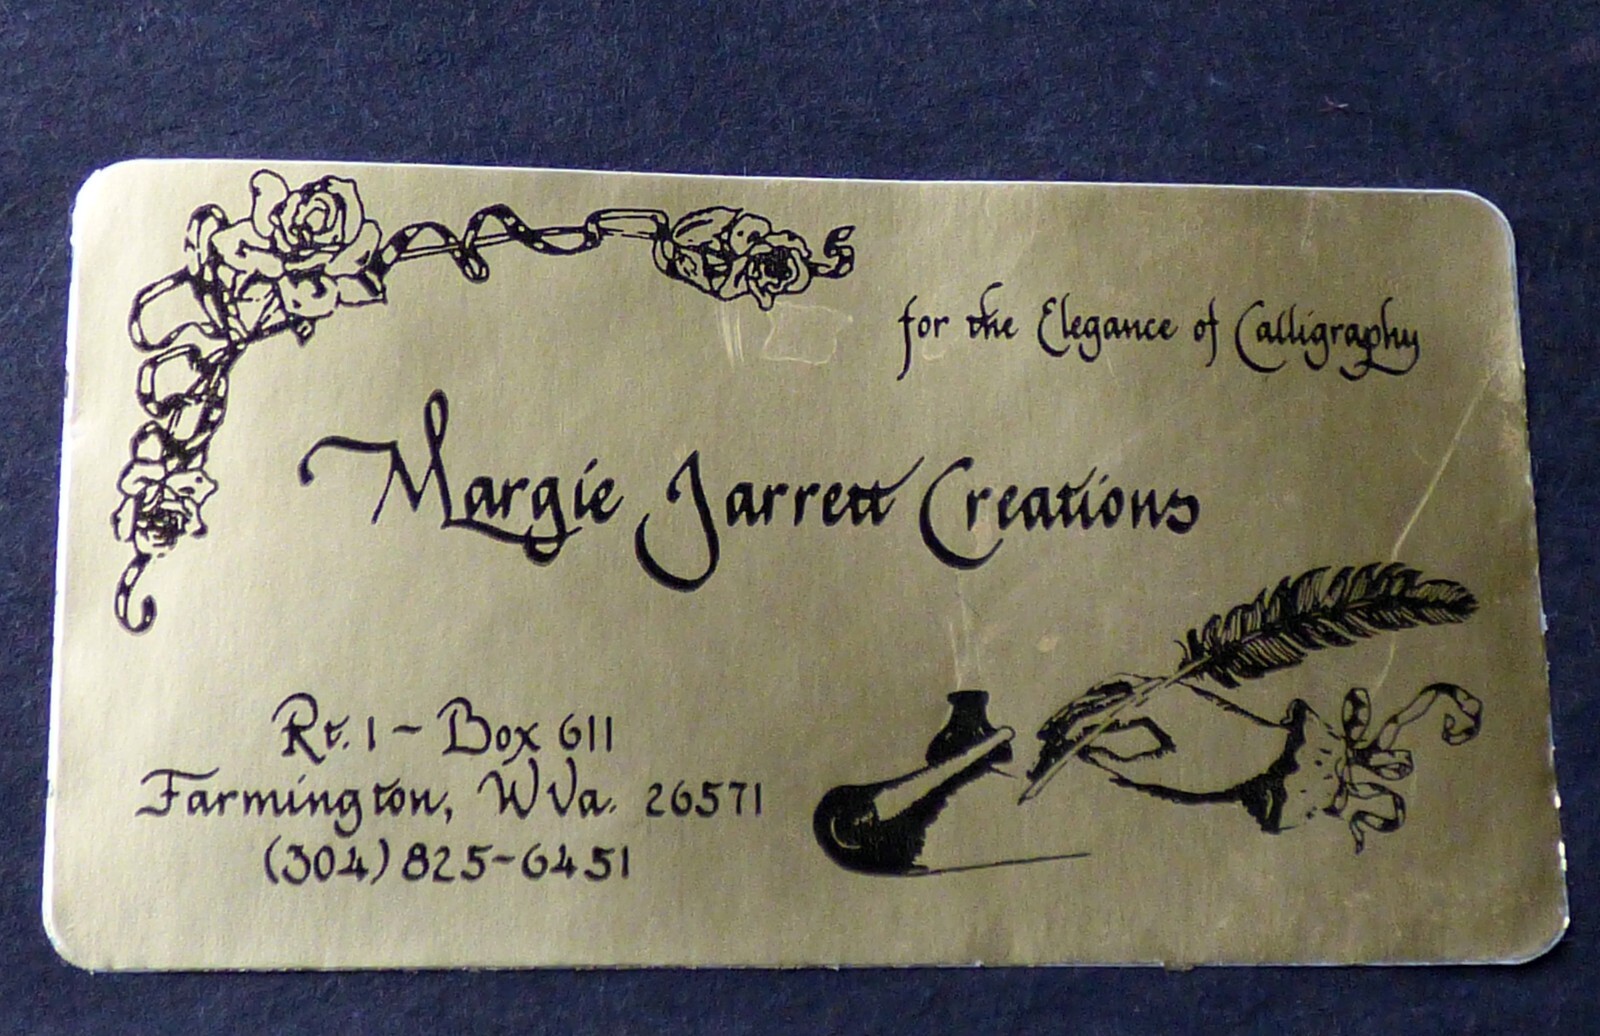 for the Elegance of Calligraphy
Margie Jarrett Creations
Rt. 1 ~ Box 611
Farmington, WVa. 26571
(304) 825-6451